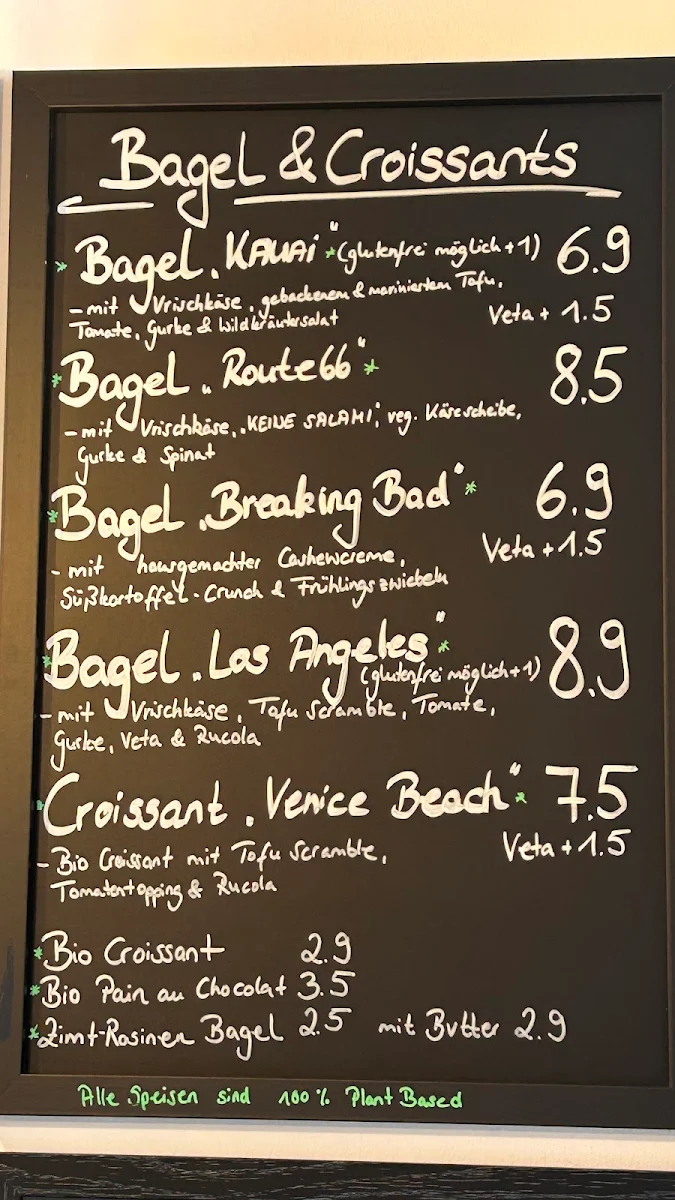 Bagel & Croissants
* Bagel „KAUAI“ * (glutenfrei möglich +1) 6.9
- mit Vrischkäse, gebackenem & mariniertem Tofu,
Tomate, Gurke & Wildkräutersalat Veta + 1.5
* Bagel „Route66“ * 8.5
- mit Vrischkäse, „KEINE SALAMI“, veg. Käsescheibe,
Gurke & Spinat
* Bagel „Breaking Bad“ * 6.9
- mit hausgemachter Cashewcreme, Veta + 1.5
Süßkartoffel-Crunch & Frühlingszwiebeln
* Bagel „Los Angeles“ * 8.9
(glutenfrei möglich +1)
- mit Vrischkäse, Tofu Scramble, Tomate,
Gurke, Veta & Rucola
* Croissant „Venice Beach“ * 7.5
- Bio Croissant mit Tofu Scramble, Veta + 1.5
Tomatentopping & Rucola
* Bio Croissant 2.9
* Bio Pain au Chocolat 3.5
* Zimt-Rosinen Bagel 2.5 mit Butter 2.9
Alle Speisen sind 100 % Plant Based